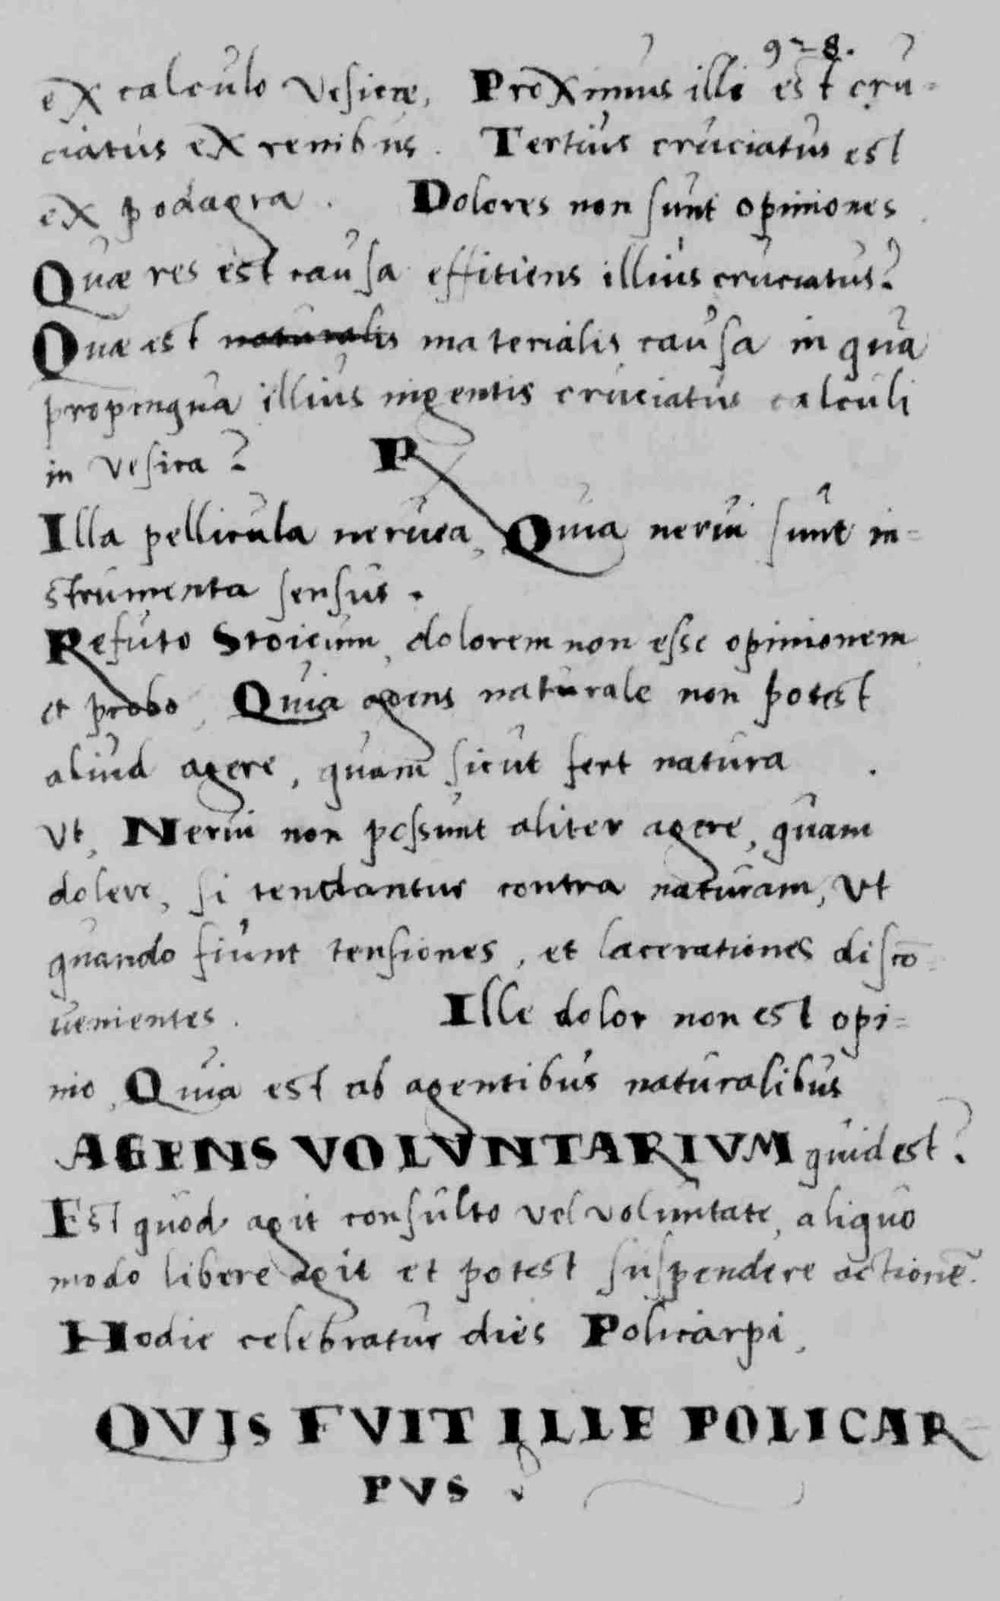 9-8.
ex calculo vesicæ, Proximus illi est cru-
ciatus ex renibus. Tertius cruciatus est
ex podagra. Dolores non sunt opiniones
Quæ res est causa effitiens illius cruciatus?
Quæ est naturalis materialis causa in qua
propinqua illius ingentis cruciatus calculi
in vesica? P
Illa pellicula neruea, Quia nerui sunt in=
strumenta sensus.
Refuto Stoicum, dolorem non esse opinionem
et probo, Quia agens naturale non potest
aliud agere, quam sicut fert natura.
Vt, Nerui non possunt aliter agere, quam
dolere, si tendantur contra naturam, Vt
quando fiunt tensiones, et lacerationes discō=
uenientes. Ille dolor non est opi=
nio, Quia est ab agentibus naturalibus
AGENS VOLVNTARIVM quid est?
Est quod agit consulto vel voluntate, aliquo
modo libere agit et potest suspendere actionē.
Hodie celebratur dies Policarpi,
QVIS FVIT ILLE POLICAR
PVS ?